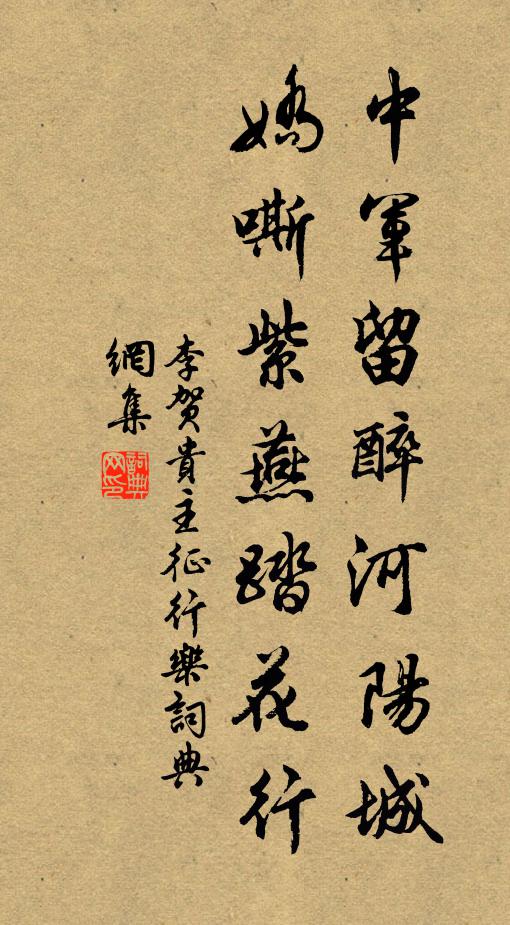 中軍留醉河陽城
嬌嘶紫燕踏花行
李賀貴主征行樂詞典
網集
詞典網印